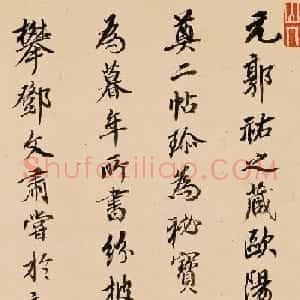 元郭祐之藏歐陽
奠二帖珍為秘寶
為暮年所書紛披
攀鄧文肅嘗於
Shufaziliao.com